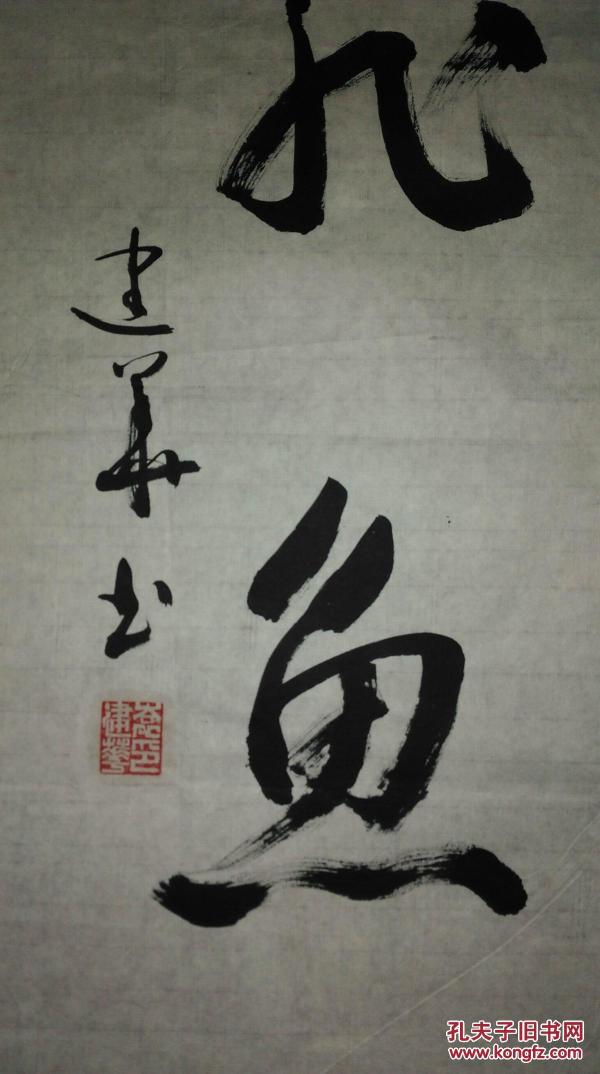 魚
建華书
孔夫子旧书网
www.kongfz.com